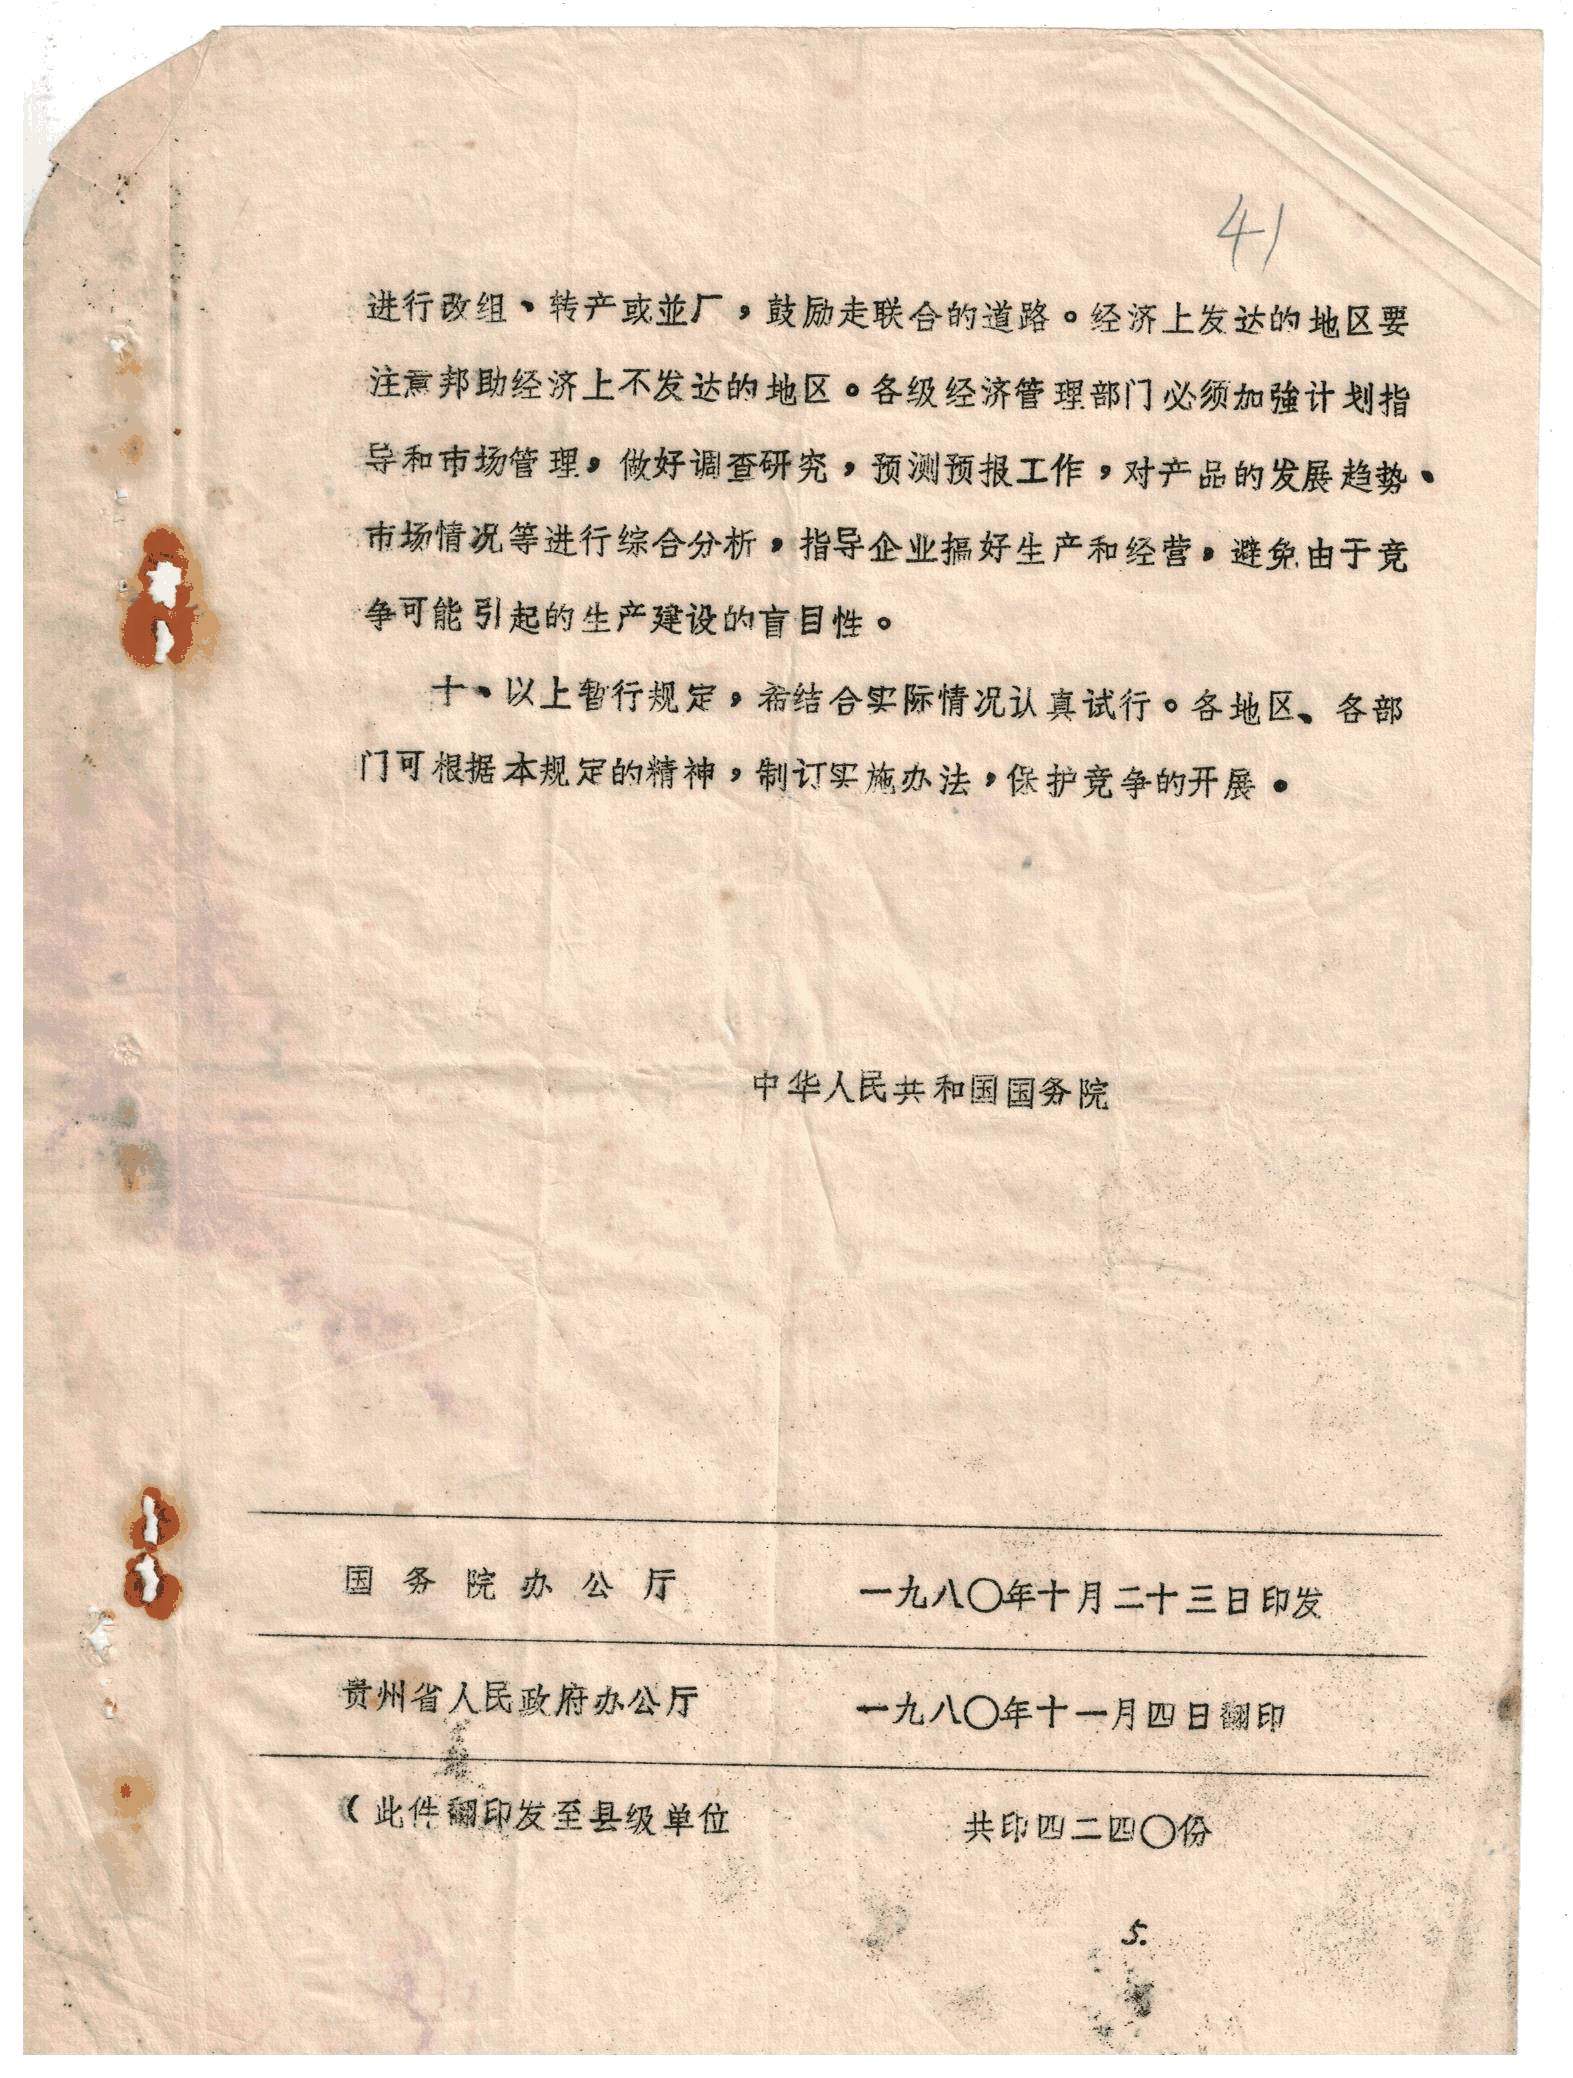 41
进行改组、转产或並厂，鼓励走联合的道路。经济上发达的地区要
注意邦助经济上不发达的地区。各级经济管理部门必须加強计划指
导和市场管理，做好调查研究，预测预报工作，对产品的发展趋势、
市场情况等进行综合分析，指导企业搞好生产和经营，避免由于竞
争可能引起的生产建设的盲目性。
十、以上暂行规定，希结合实际情况认真试行。各地区、各部
门可根据本规定的精神，制订实施办法，保护竞争的开展。
中华人民共和国国务院
国务院办公厅 一九八〇年十月二十三日印发
贵州省人民政府办公厅 一九八〇年十一月四日翻印
（此件翻印发至县级单位 共印四二四〇份
5.